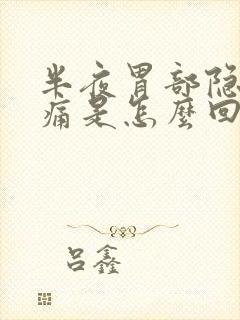 半夜胃部隐
痛是怎麼回
吕鑫